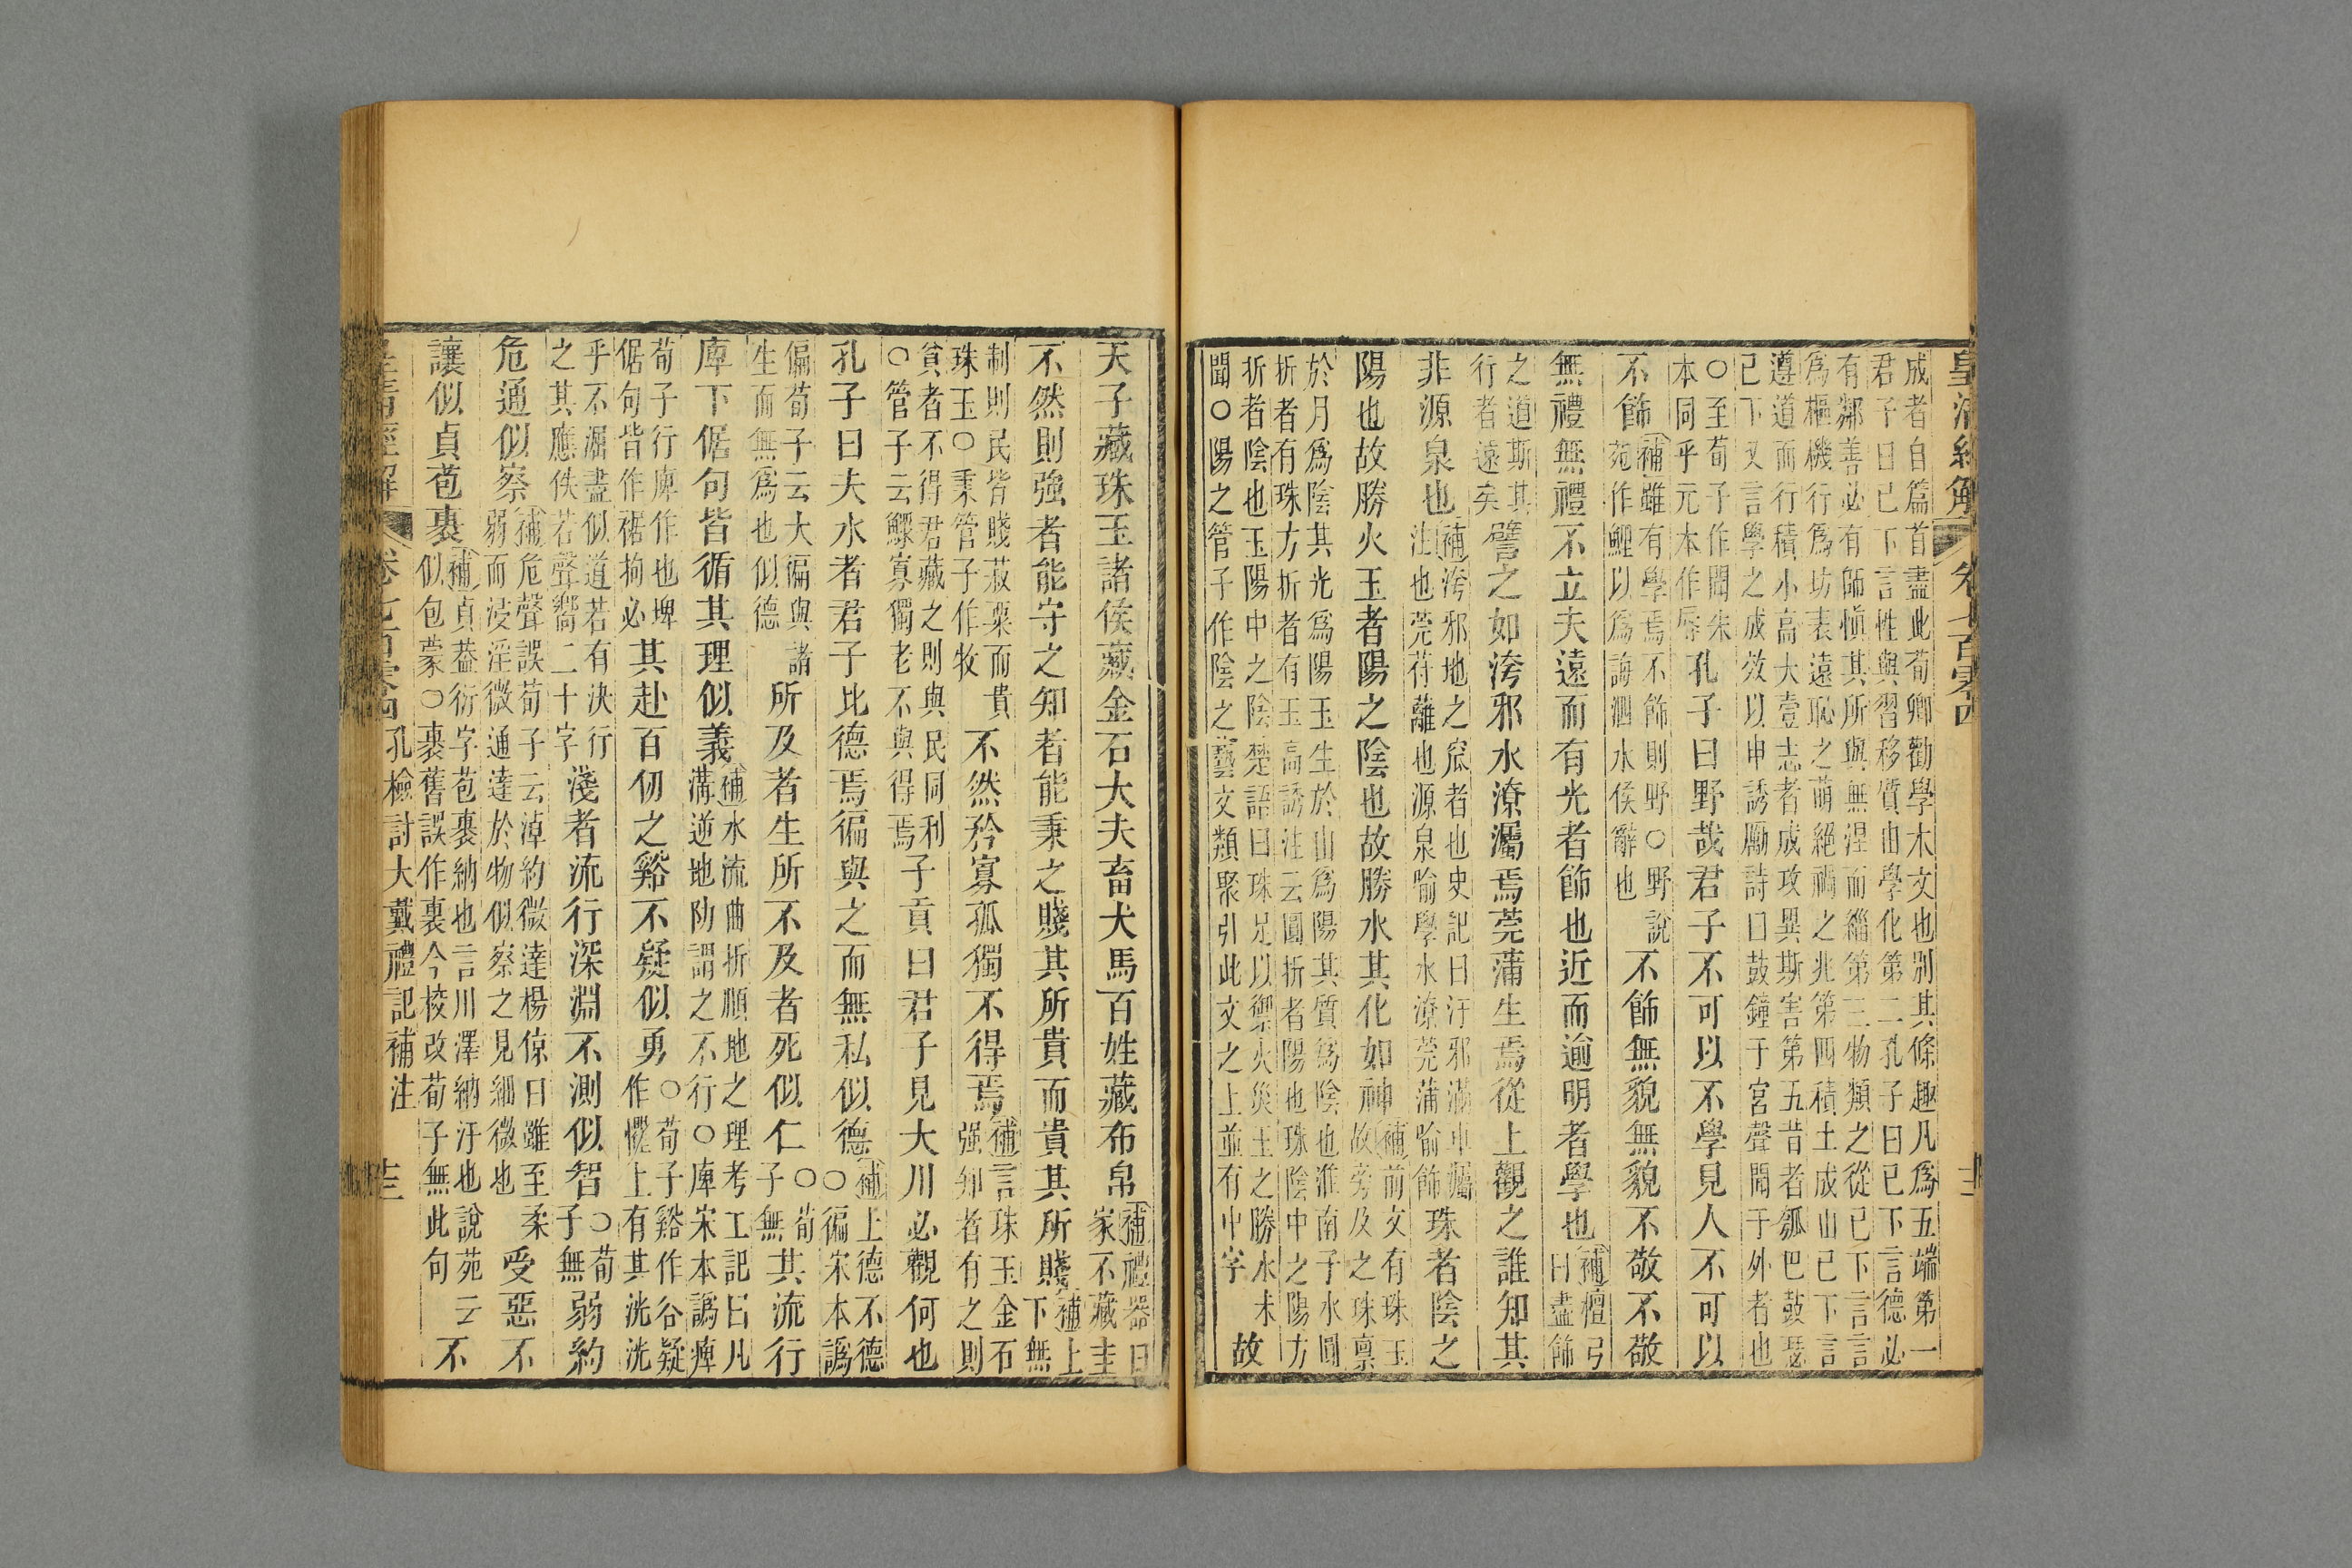 皇清經解 卷七百零四
成者自篇首盡此荀卿勸學木文也別其條趣凡爲五端第一
君子曰已下言性與習移質由學化第二孔子曰已下言德必
有鄰善必有師愼其所與無涅而緇第三物類之從已下言言
爲樞機行爲坊表遠恥之萌絕禍之兆第四積土成山已下言
遵道而行積小高大壹志者成攻異斯害第五昔者瓠巴鼓瑟
已下又言學之成效以申誘勵詩曰鼓鐘于宮聲聞于外者也
○至荀子作聞朱
本同乎元本作辱
孔子曰野哉君子不可以不學見人不可以
不飾
補雖有學焉不飾則野○野說
苑作鯉以爲誨泗水侯辭也
不飾無貌無貌不敬不敬
無禮無禮不立夫遠而有光者飾也近而逾明者學也
補檀弓
曰盡飾
之道斯其
行者遠矣
譬之如洿邪水潦灟焉莞蒲生焉從上觀之誰知其
非源泉也
補洿邪地之窊者也史記曰汙邪滿車灟
注也莞苻蘺也源泉喻學水潦莞蒲喻飾
珠者陰之
陽也故勝火玉者陽之陰也故勝水其化如神
補前文有珠玉
故旁及之珠禀
於月爲陰其光爲陽玉生於山爲陽其質爲陰也淮南子水圓
折者有珠方折者有玉高誘注云圓折者陽也珠陰中之陽方
折者陰也玉陽中之陰楚語曰珠足以禦火災玉之勝水未
聞○陽之管子作陰之藝文類聚引此文之上並有中字
故
天子藏珠玉諸侯藏金石大夫畜犬馬百姓藏布帛
補禮器曰
家不藏圭
不然則強者能守之知者能秉之賤其所貴而貴其所賤
補上
下無
制則民皆賤菽粟而貴
珠玉○秉管子作牧
不然矜寡孤獨不得焉
補言珠玉金石
强知者有之則
貧者不得君藏之則與民同利
○管子云鰥寡獨老不與得焉
子貢曰君子見大川必觀何也
孔子曰夫水者君子比德焉徧與之而無私似德
補上德不德
○徧宋本譌
偏荀子云大徧與諸
生而無爲也似德
所及者生所不及者死似仁
○荀
子無
其流行
庳下倨句皆循其理似義
補水流曲折順地之理考工記曰凡
溝逆地阞謂之不行○庳宋本譌痺
荀子行庳作也埤
倨句皆作裾拘必
其赴百仞之谿不疑似勇
○荀子谿作谷疑
作懼上有其洸洸
乎不淈盡似道若有決行
之其應佚若聲響二十字
淺者流行深淵不測似智
○荀
子無
弱約
危通似察
補危聲誤荀子云淖約微達楊倞曰雖至柔
弱而浸淫微通達於物似察之見細微也
受惡不
讓似貞苞裹
補貞葢衍字苞裹納也言川澤納汙也說苑云
似包蒙○裹舊誤作裏今校改荀子無此句
不
皇清經解 卷七百零四 孔檢討大戴禮記補注 圭